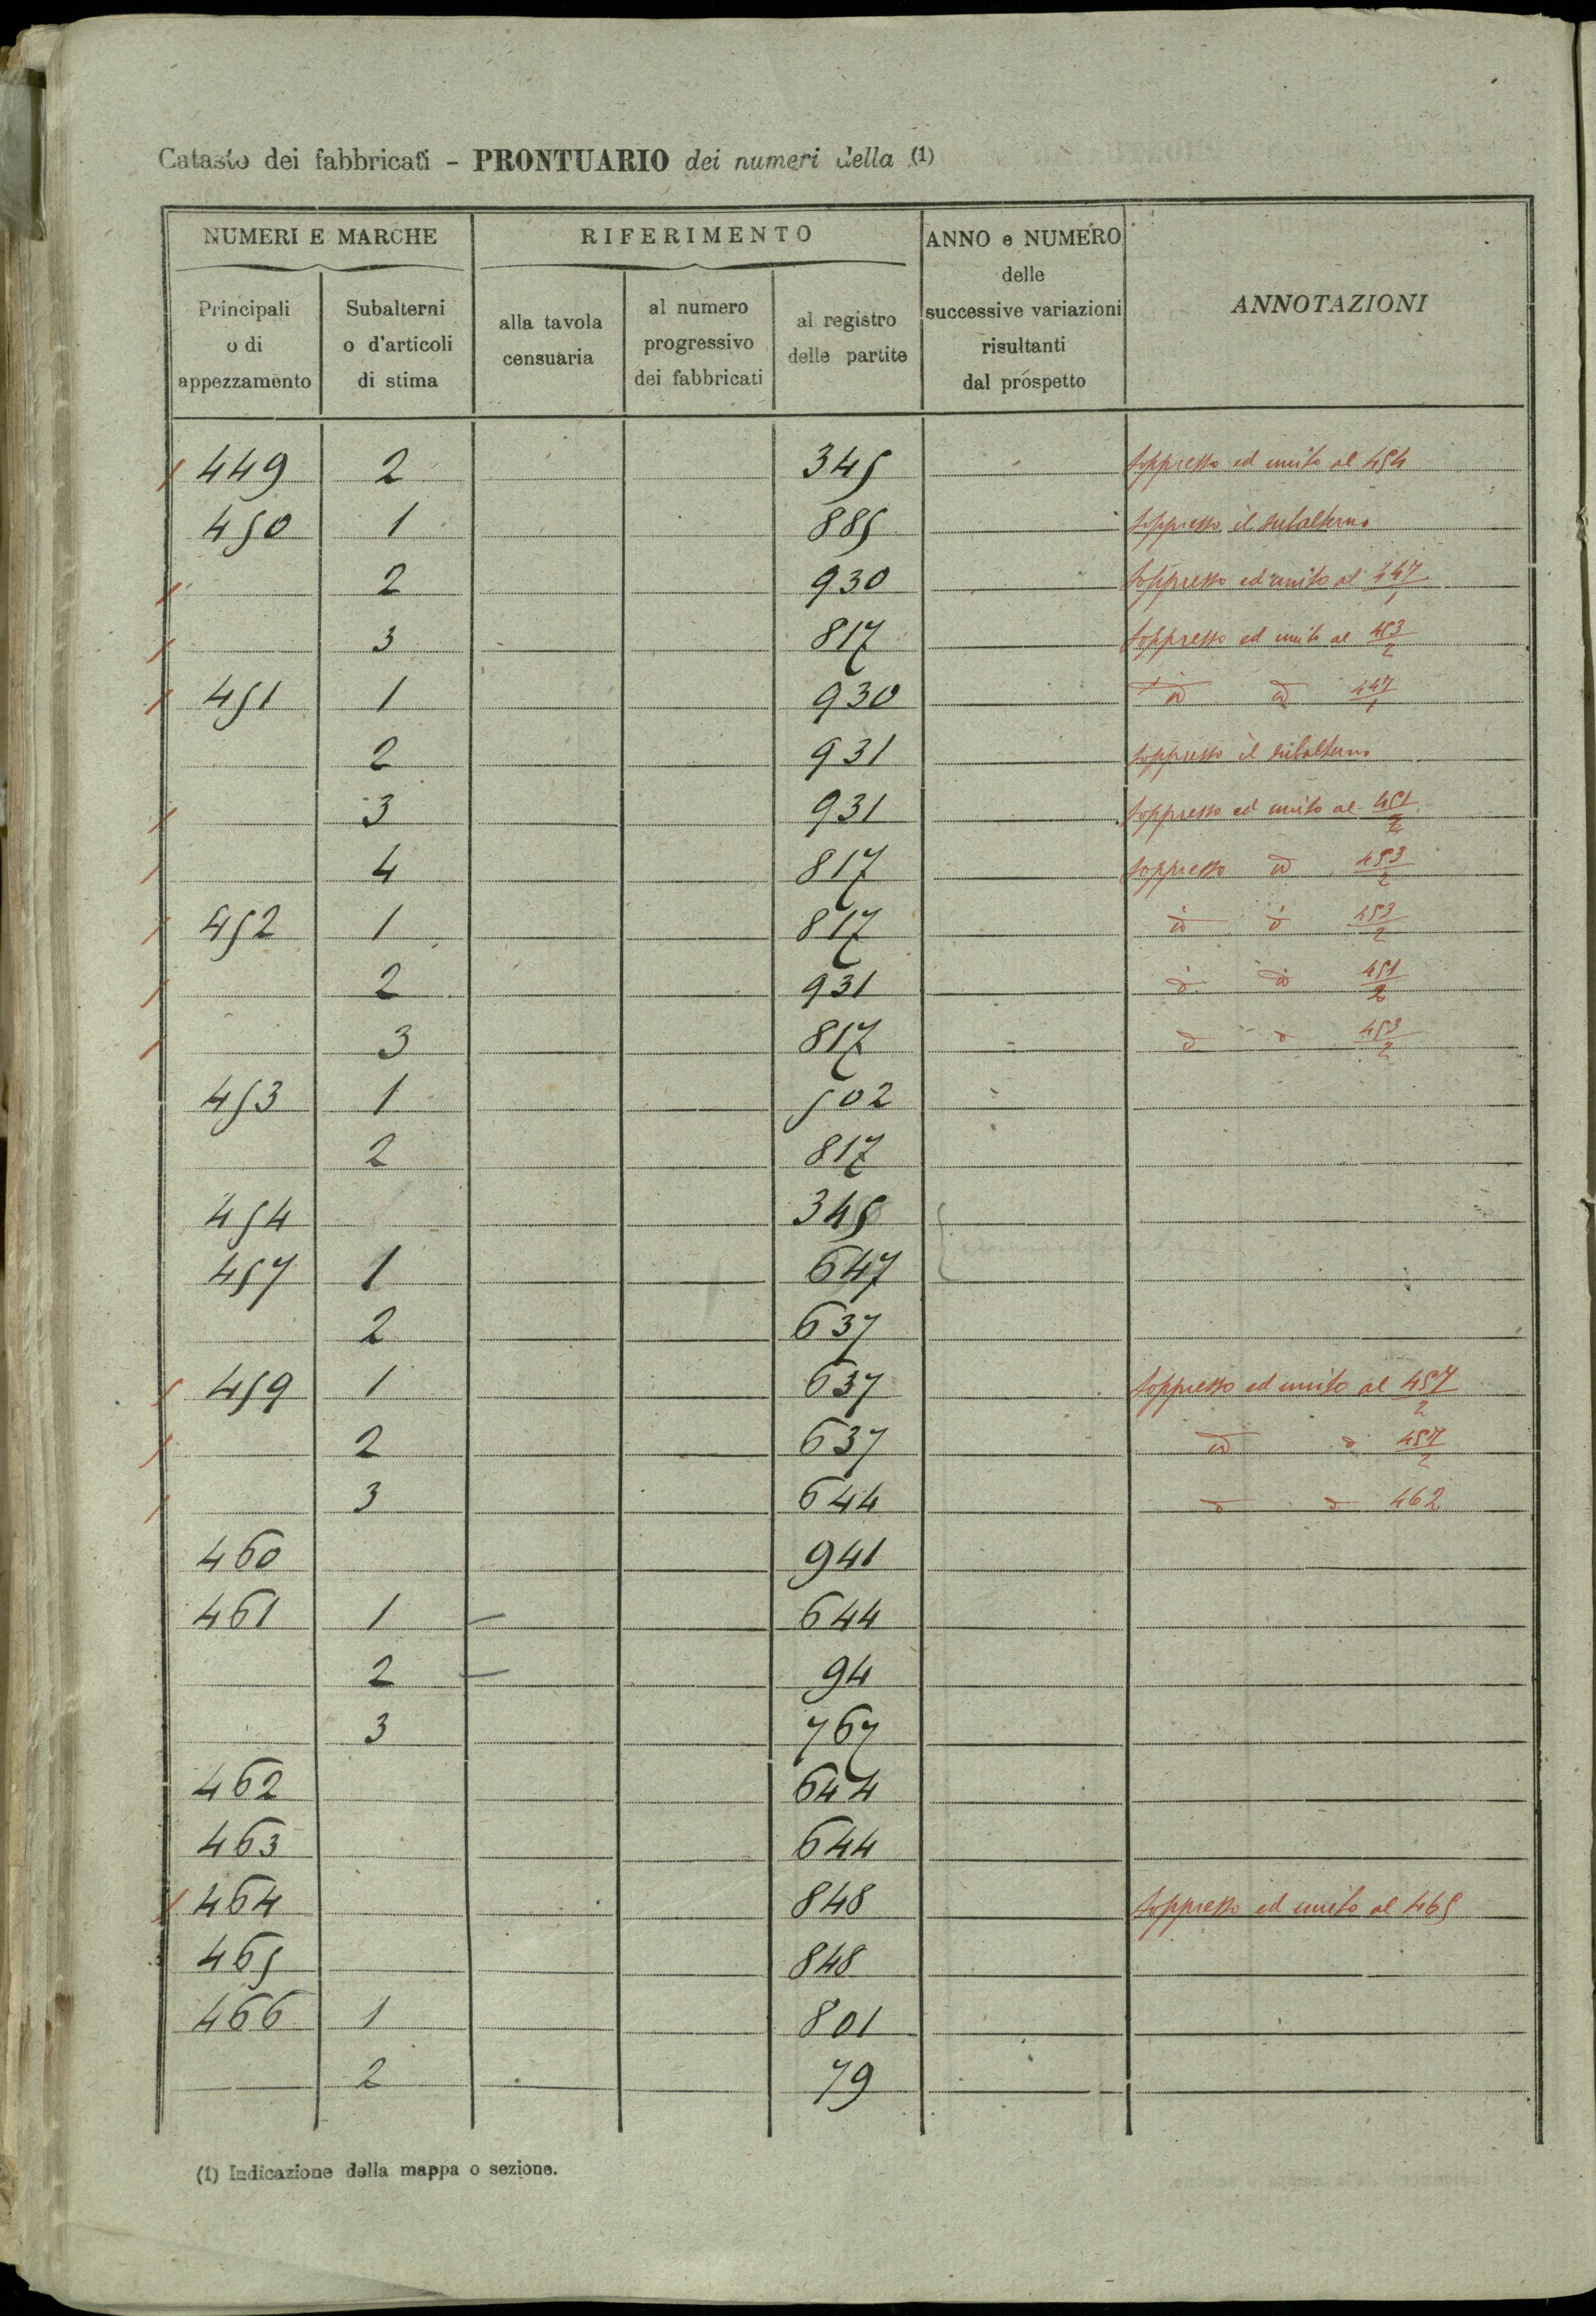 Catasto dei fabbricati - PRONTUARIO dei numeri della (1)
NUMERI E MARCHE
RIFERIMENTO
ANNO e NUMERO
delle
successive variazioni
risultanti
dal prospetto
ANNOTAZIONI
Principali
o di
appezzamento
Subalterni
o d'articoli
di stima
alla tavola
censuaria
al numero
progressivo
dei fabbricati
al registro
delle partite
449 2 345 Soppresso ed unito al 454
450 1 885 Soppresso il subalterno
2 930 Soppresso ed unito al 447/1
3 817 Soppresso ed unito al 453/2
451 1 930 id id 447/1
2 931 Soppresso il subalterno
3 931 Soppresso ed unito al 451/2
4 817 Soppresso id 453/2
452 1 817 id id 453/2
2 931 id id 451/2
3 817 id id 453/2
453 1 502
2 817
454 345
457 1 647
2 637
459 1 637 Soppresso ed unito al 457/2
2 637 id id 457/2
3 644 id id 462
460 941
461 1 644
2 94
3 767
462 644
463 644
464 848 Soppresso ed unito al 465
465 848
466 1 801
2 79
(1) Indicazione della mappa o sezione.